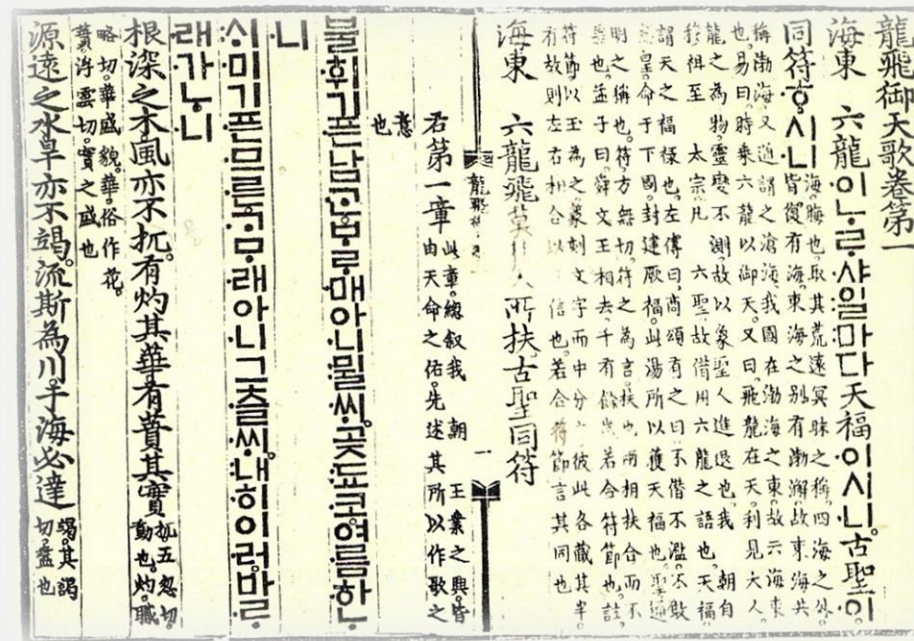 龍飛御天歌卷第一
海東 六龍이ᄂᆞᄅᆞ샤일마다天福이시니。古聖이
同符ᄒᆞ시니
海。海晦也。取其荒遠冥昧之稱。四海之外。
皆復有海。東海之別有渤澥。故東海共
稱渤海。又通謂之滄海。我國在渤海之東。故云海東
也。易曰。時乘六龍以御天。又曰。飛龍在天。利見大人。
龍之為物。靈變不測。故以象聖人進退也。我 朝自
穆祖至 太宗凡 六聖。故借用六龍之語也。天福。
謂天之福祿也。左傳曰。商頌有之曰。不僭不濫。不敢
怠皇。命于下國。封建厥福。此湯所以獲天福也。聖。通
明之稱也。符。方無切。符之為言。扶也。兩相扶合而不
差也。孟子曰。舜文王相去。千有餘歲。若合符節也。註。
符節。以玉為之。篆刻文字而中分之。彼此各藏其半。
有故則左右相合以 信也。若合符節。言其同也
海東 六龍飛莫 所扶。古聖同符
龍飛
一
右第一章
此章。總叙我 朝王業之興。皆
由天命之佑。先述其所以作歌之
意也
불휘기픈남ᄀᆞᆫᄇᆞᄅᆞ매아니뮐씨。곶됴코여름하ᄂᆞ
니
ᄉᆡ미기픈므른ᄀᆞᄆᆞ래아니그츨씨。내히이러바ᄅᆞ
래가ᄂᆞ니
根深之木。風亦不扤。有灼其華。有蕡其實
扤。五忽切。
動也。灼。職
略切。華盛貌。華。俗作花。
蕡。浮雲切。實之盛也
源遠之水。旱亦不竭。流斯為川。于海必達
竭。其謁
切。盡也